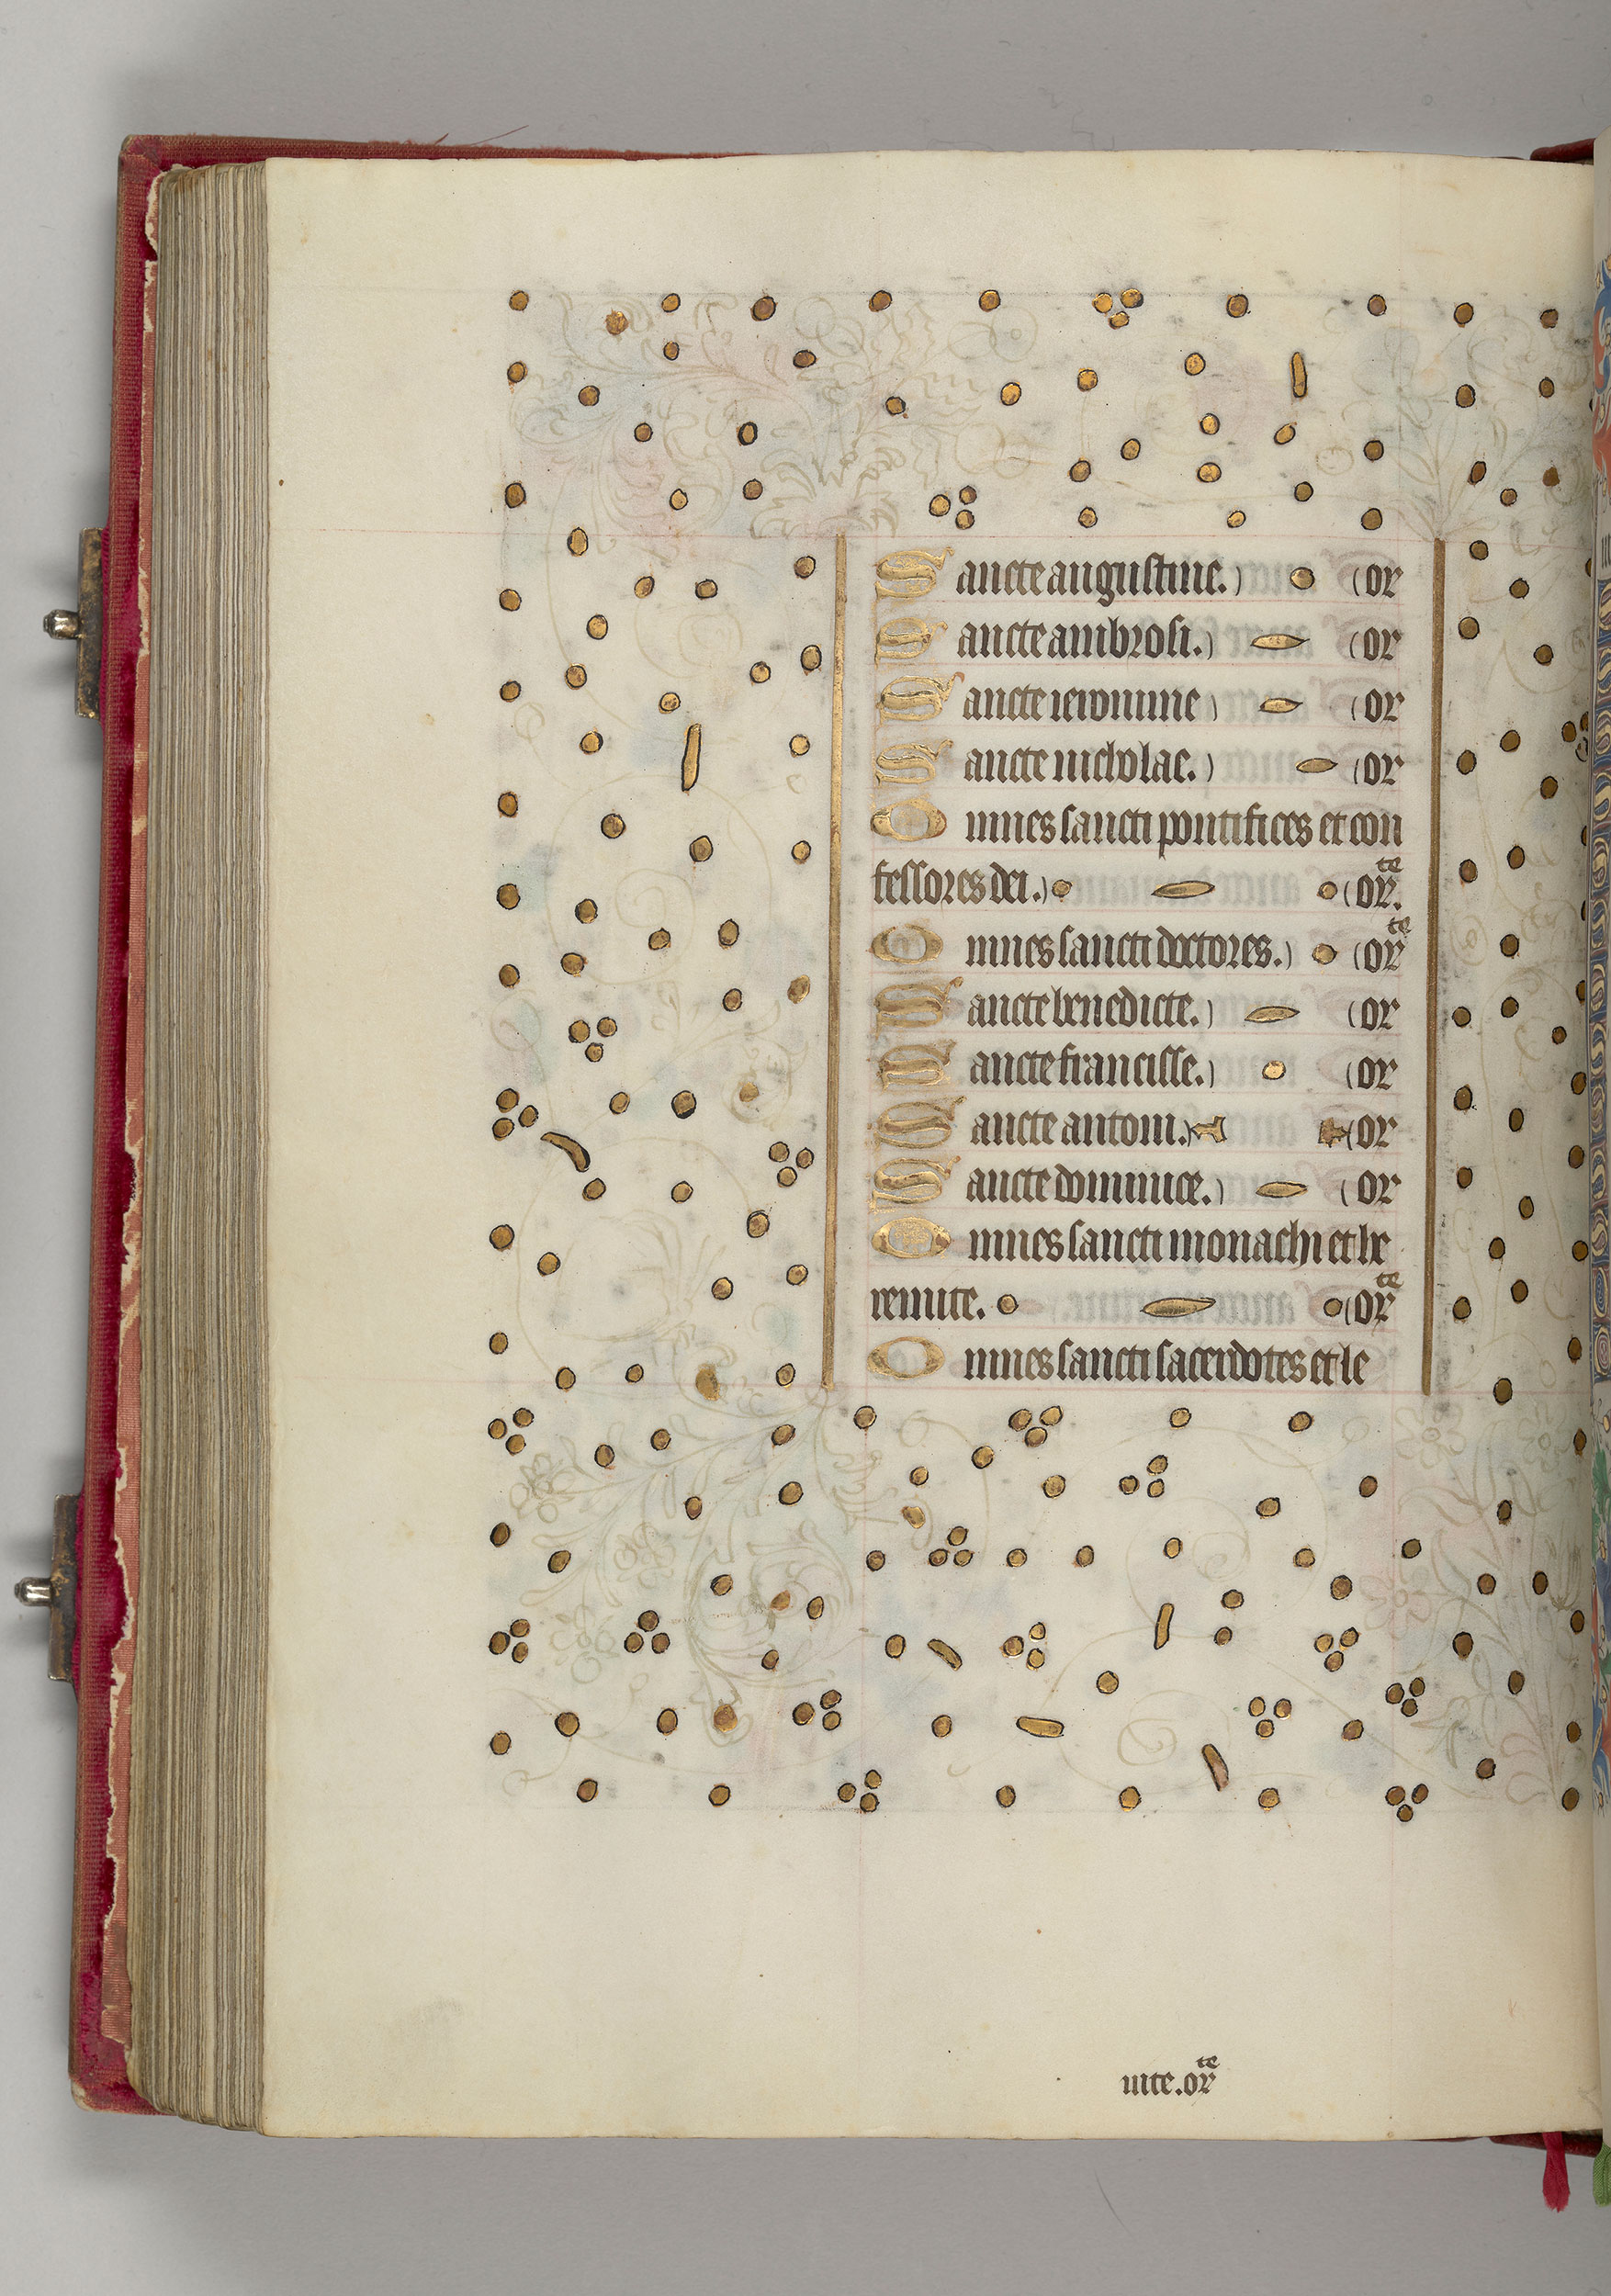 Sancte augustine. or
Sancte ambrosi. or
Sancte ieronime or
Sancte nicholae. or
Omnes sancti pontifices et con
fessores dei. orte.
Omnes sancti doctores. orte
Sancte benedicte. or
Sancte francisse. or
Sancte antoni. or
Sancte dominice. or
Omnes sancti monachi et he
remite. orte
Omnes sancti sacerdotes et le
uite. orte